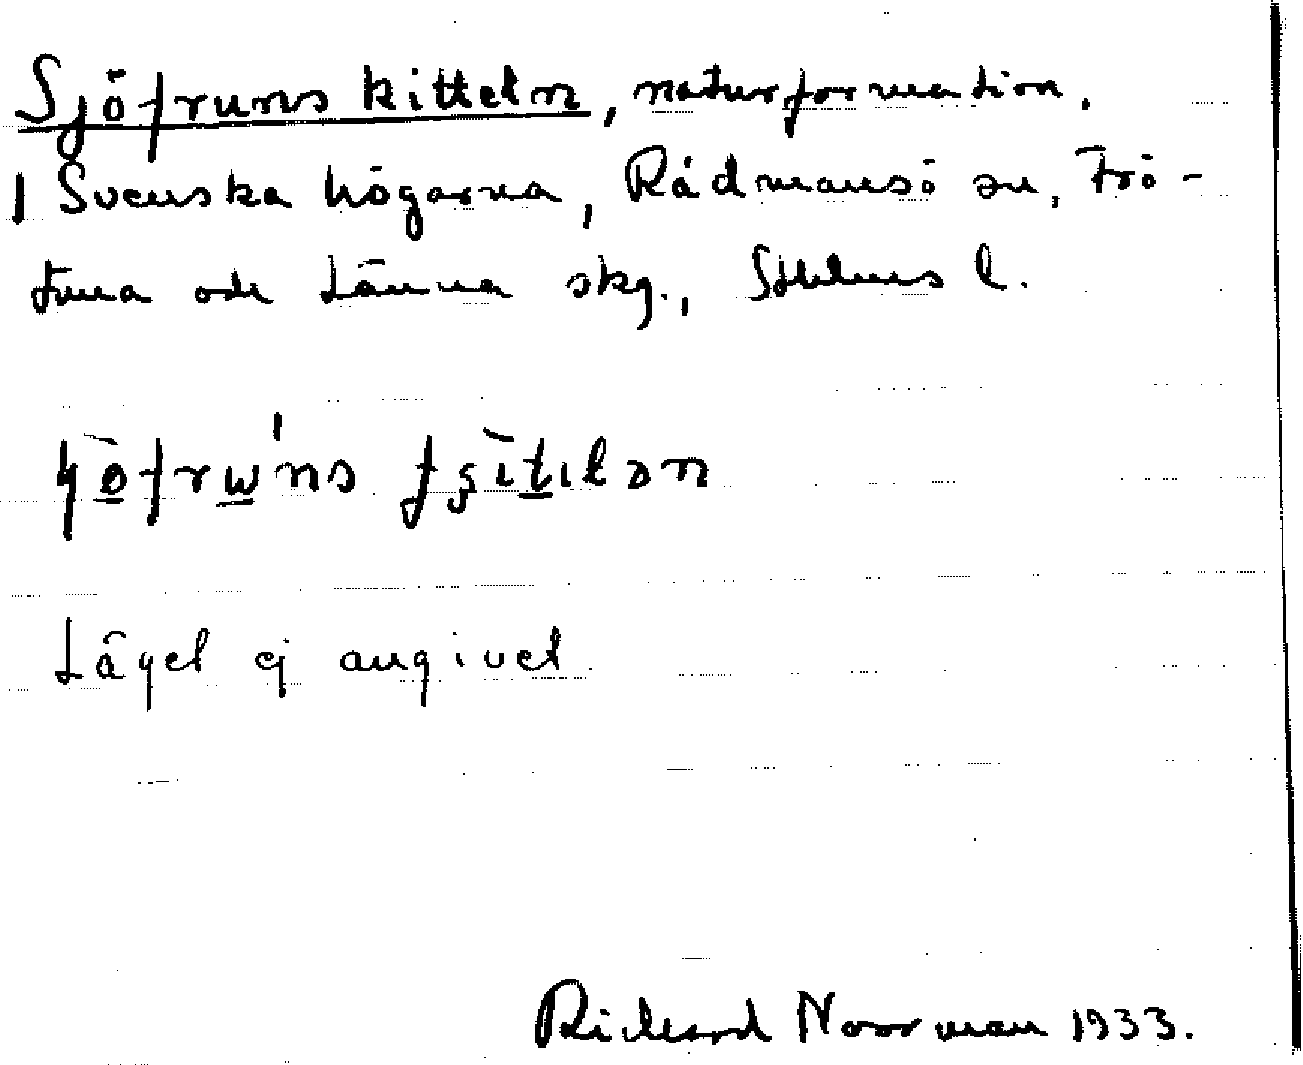 Sjöfruns kitteln, naturformation,
Svenska högarna, Rådmansö sn, Frö-
tuna och Länna skg., Sthlms l.
Läget ej angivet
Richard Noorman 1933.